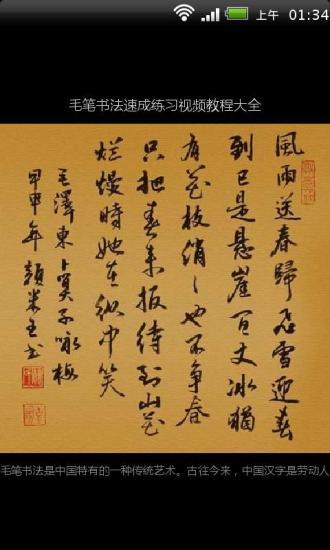 上午 01:34
毛笔书法速成练习视频教程大全
風雨送春歸飛雪迎春
到已是懸崖百丈冰猶
有花枝俏〻也不争春
只把春来报待到山花
烂熳時她在丛中笑
毛澤東卜算子咏梅
甲申年顏书
毛笔书法是中国特有的一种传统艺术。古往今来，中国汉字是劳动人